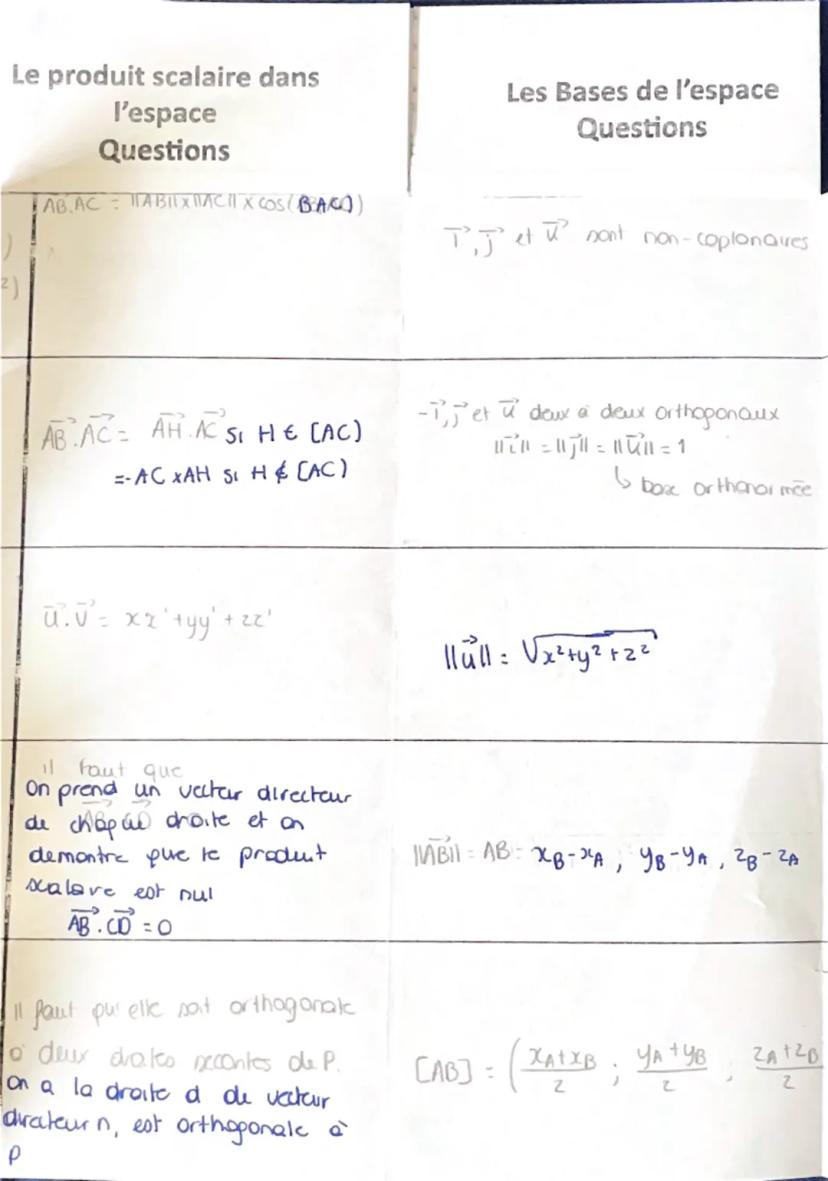 Le produit scalaire dans
l'espace
Questions
AB.AC = ||AB||x||AC|| x cos(BAC)
)
2)
AB.AC = AH.AC si H ∈ [AC)
=-AC xAH si H ∉ [AC)
u.v = xx'+yy'+zz'
il faut que
On prend un vecteur directeur
de chaque droite et on
demontre que le produit
scalaire est nul
AB.CD = 0
Il faut qu'elle soit orthogonale
à deux droites secantes de P.
On a la droite d de vecteur
directeur n, est orthogonale à
P
Les Bases de l'espace
Questions
i, j et u sont non-coplanaires
-i, j et u deux à deux orthogonaux
||i|| = ||j|| = ||u|| = 1
↳ base orthonormée
||u|| = √x²+y²+z²
||AB|| = AB = xB-xA ; yB-yA , zB-zA
[AB] = (xA+xB/2 ; yA+yB/2 ; zA+zB/2